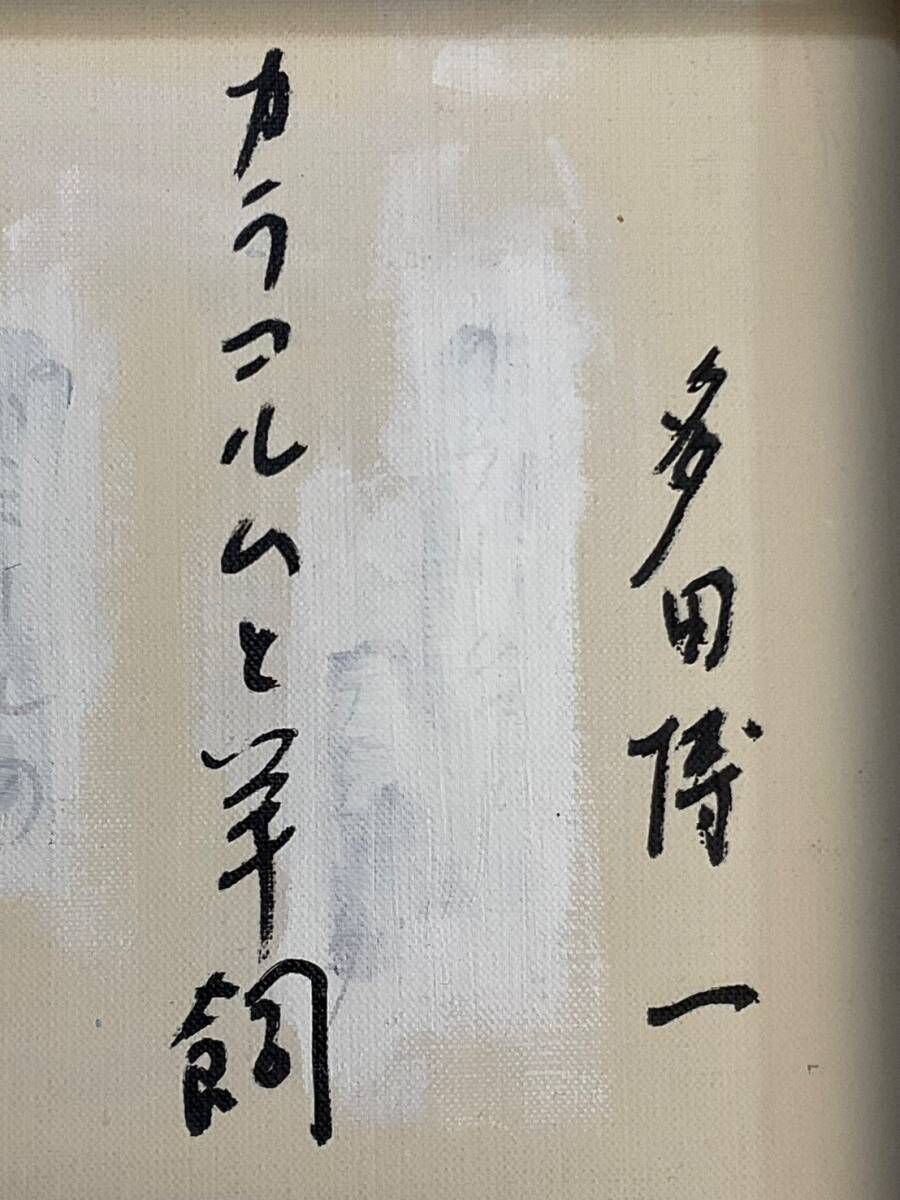 多田博一
カラコルムと羊飼